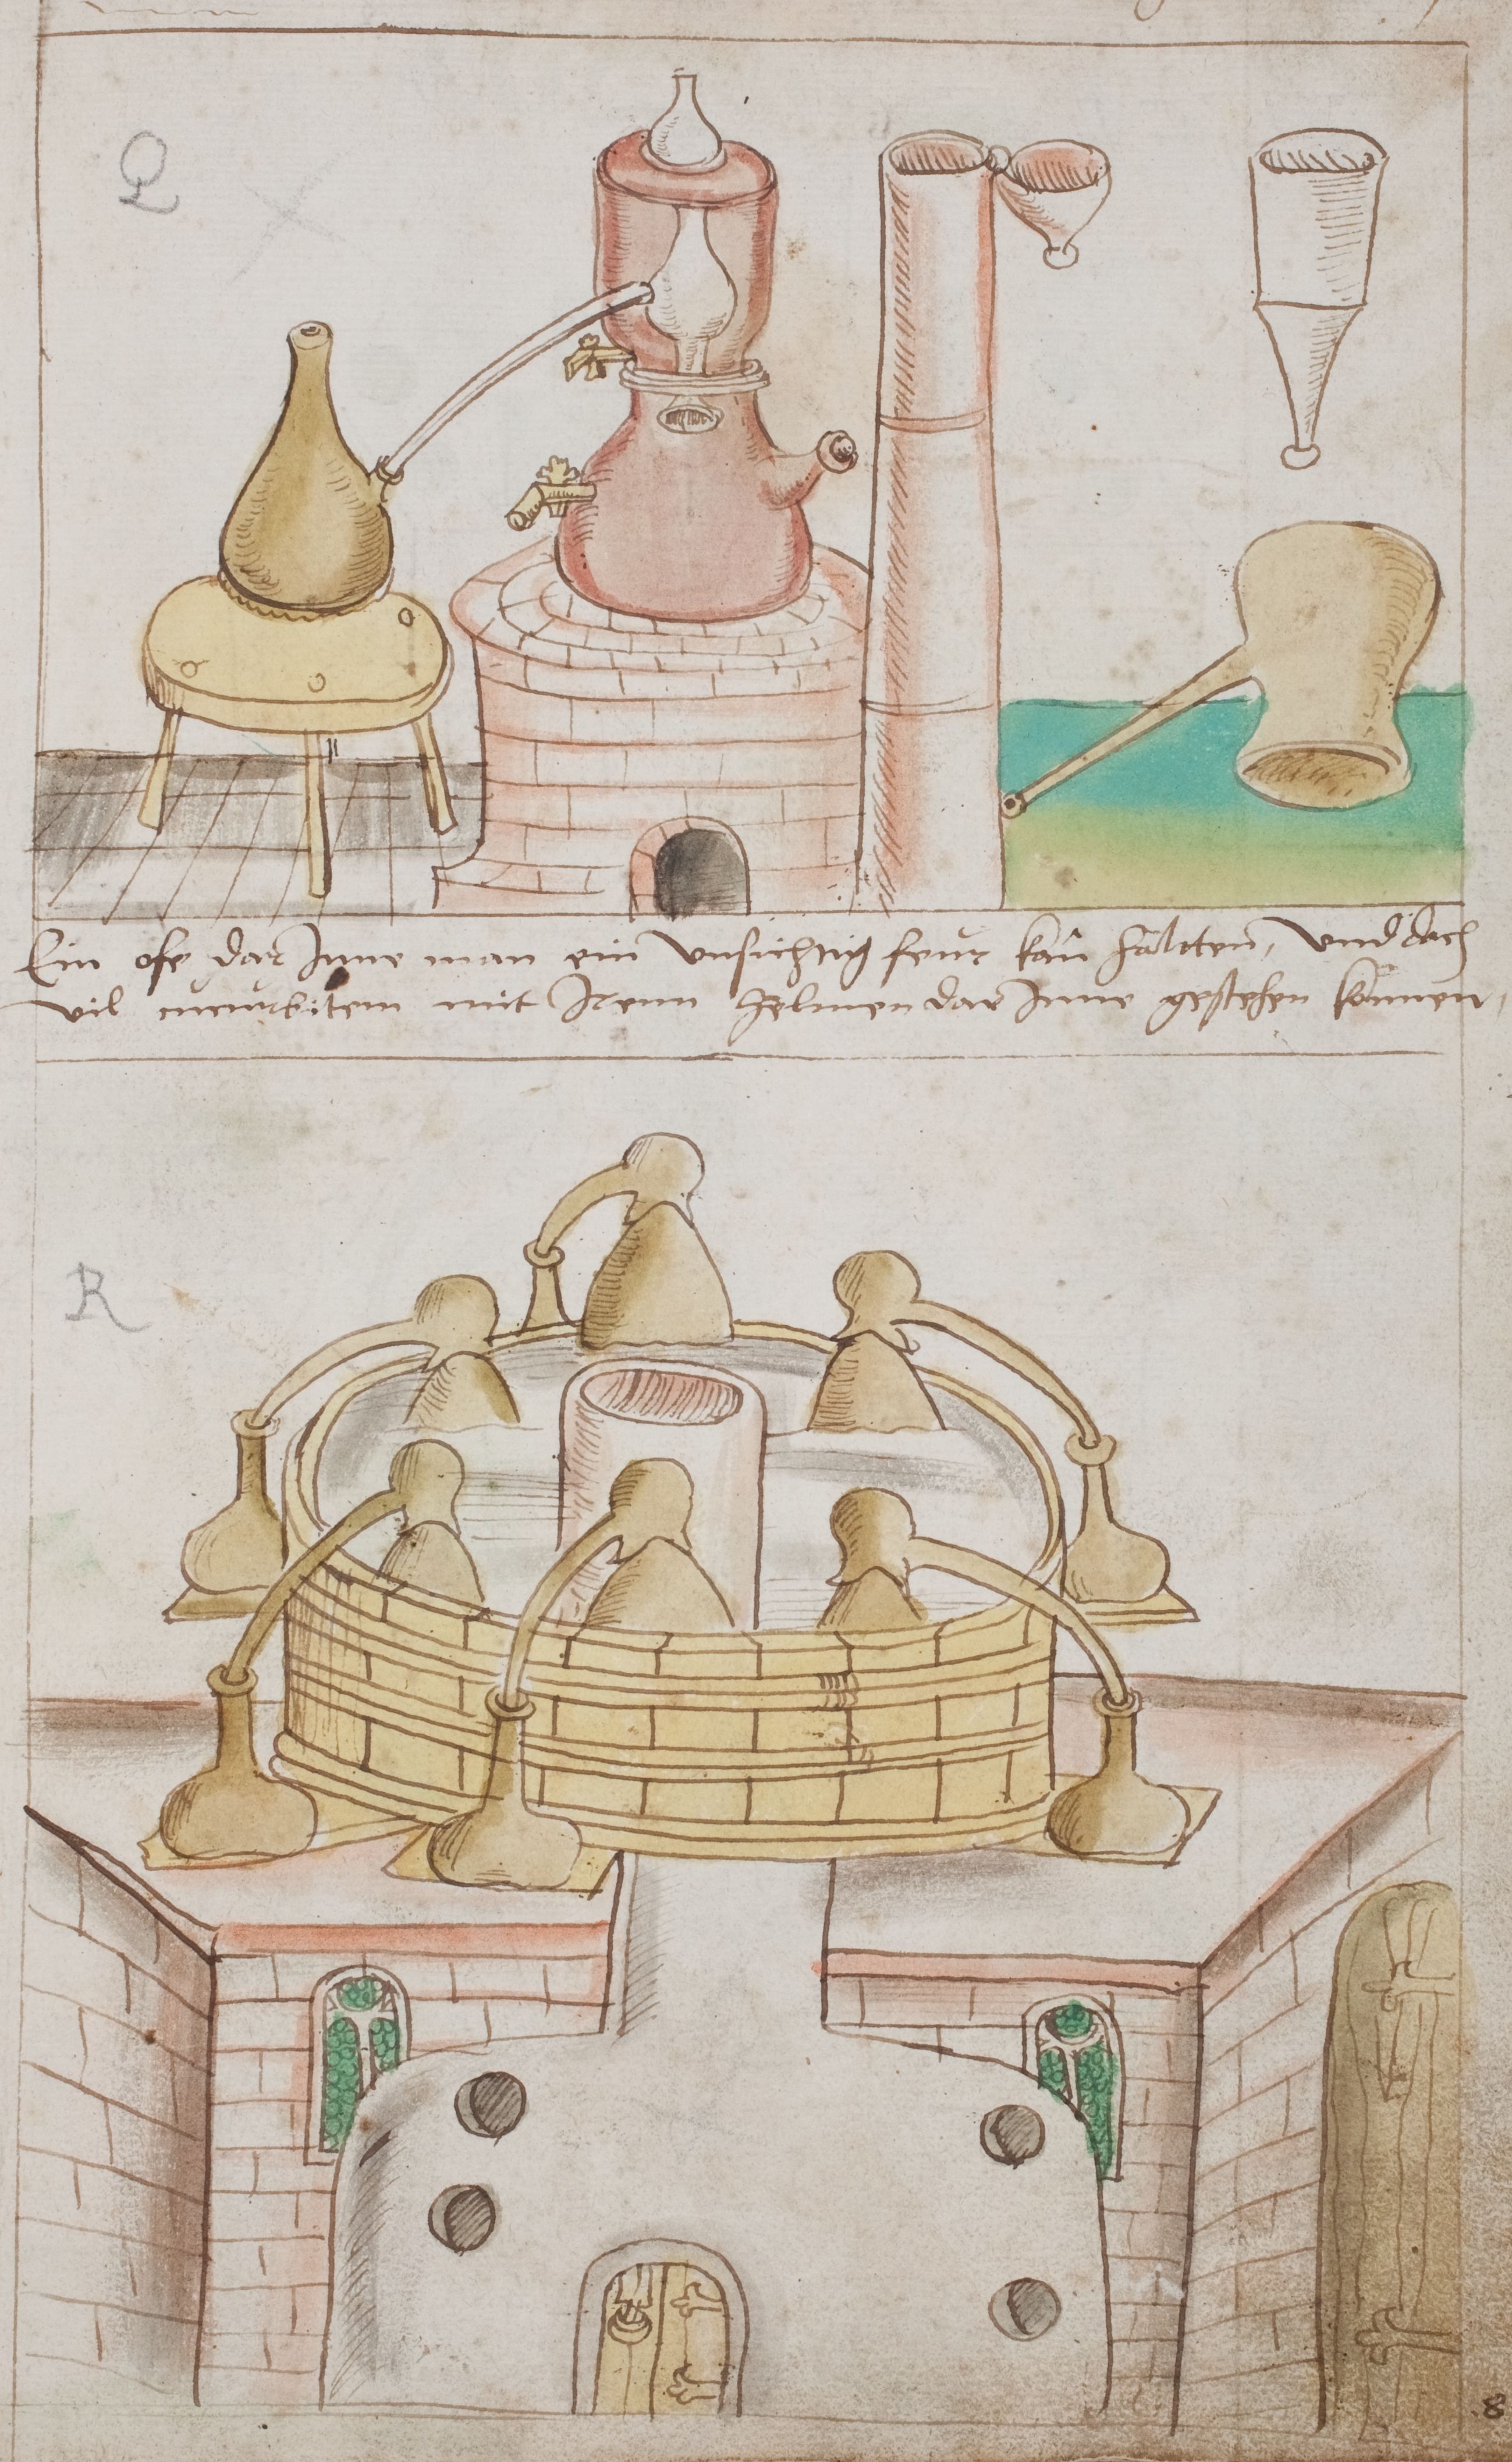 Q
Ein ofe dar Inne man ein unsichtig feur kan haltten, und doch
vil cucurbitem mit Irenn helmen dar Inne gestehen konnen,
R
8